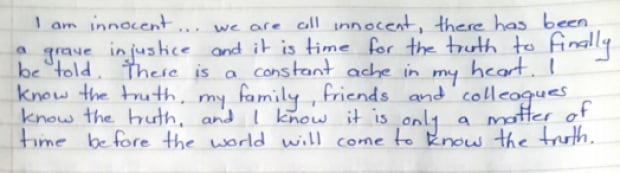 I am innocent... we are all innocent, there has been
a grave injustice and it is time for the truth to finally
be told. There is a constant ache in my heart. I
know the truth, my family, friends and colleagues
know the truth, and I know it is only a matter of
time before the world will come to know the truth.